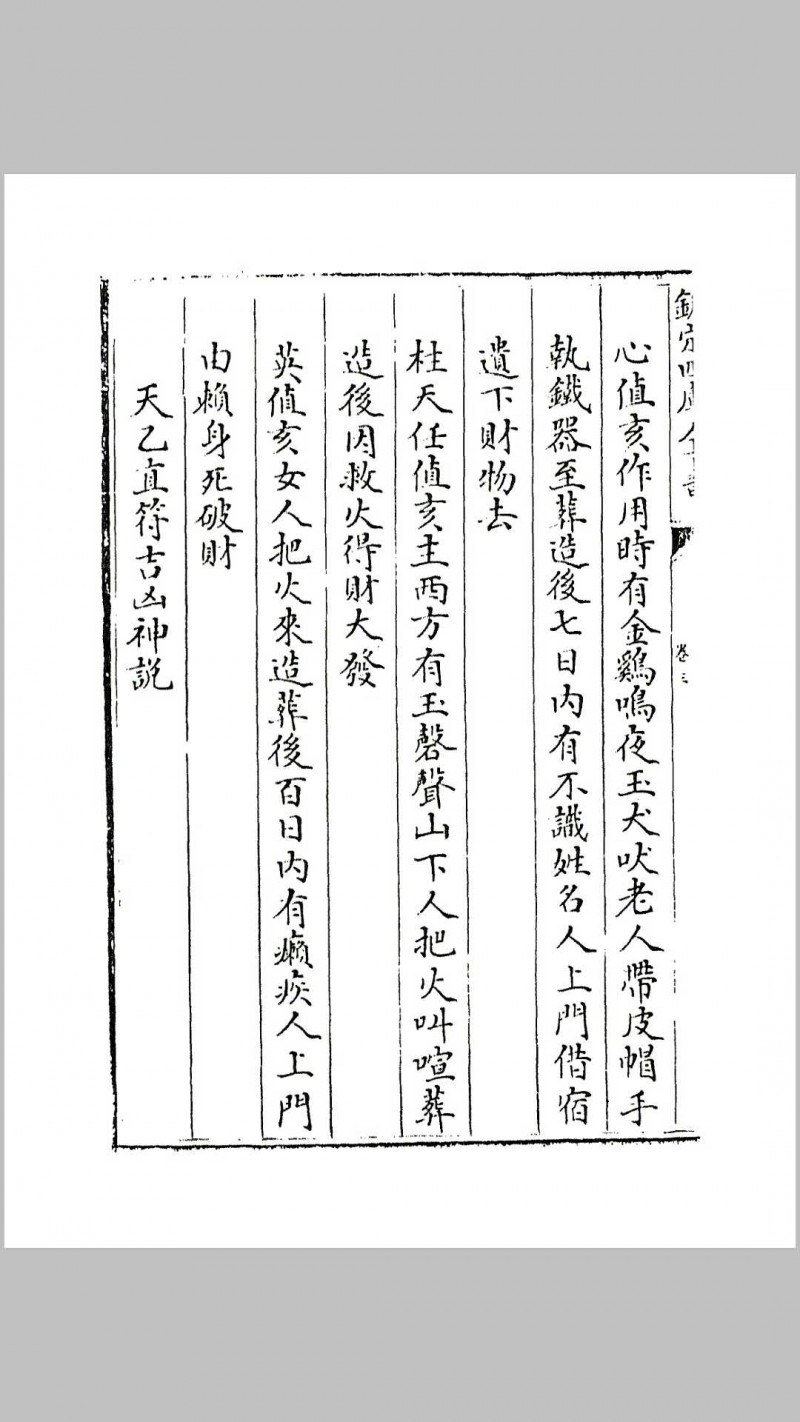 欽定四庫全書
卷三
心值亥作用時有金鷄鳴夜玉犬吠老人帶皮帽手
執鐵器至葬造後七日內有不識姓名人上門借宿
遺下財物去
柱天任值亥主西方有玉磬聲山下人把火叫喧葬
造後因救火得財大發
英值亥女人把火來造葬後百日內有癩疾人上門
由賴身死破財
天乙直符吉凶神說